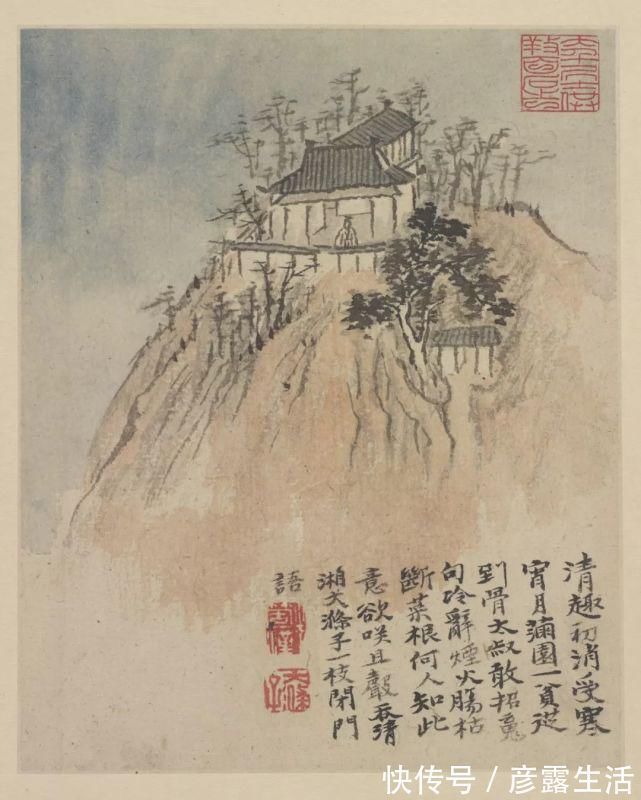 清趣初消受寒
宵月滿園一貧從
到骨太寂敢招魂
句冷辭煙火腸枯
斷菜根何人知此
意欲咲且聲吞清
湘大滌子一枝閉門
語
快传号 / 彦露生活